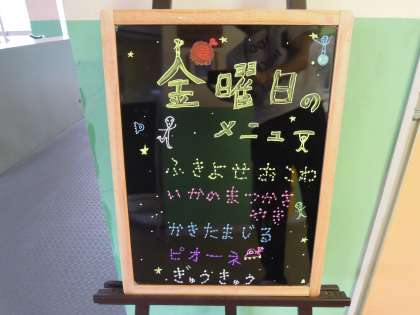 金曜日の
メニュー
ふきよせおこわ
いかのまつかさ
やき
かきたまじる
ピオーネ
ぎゅうぎゅう